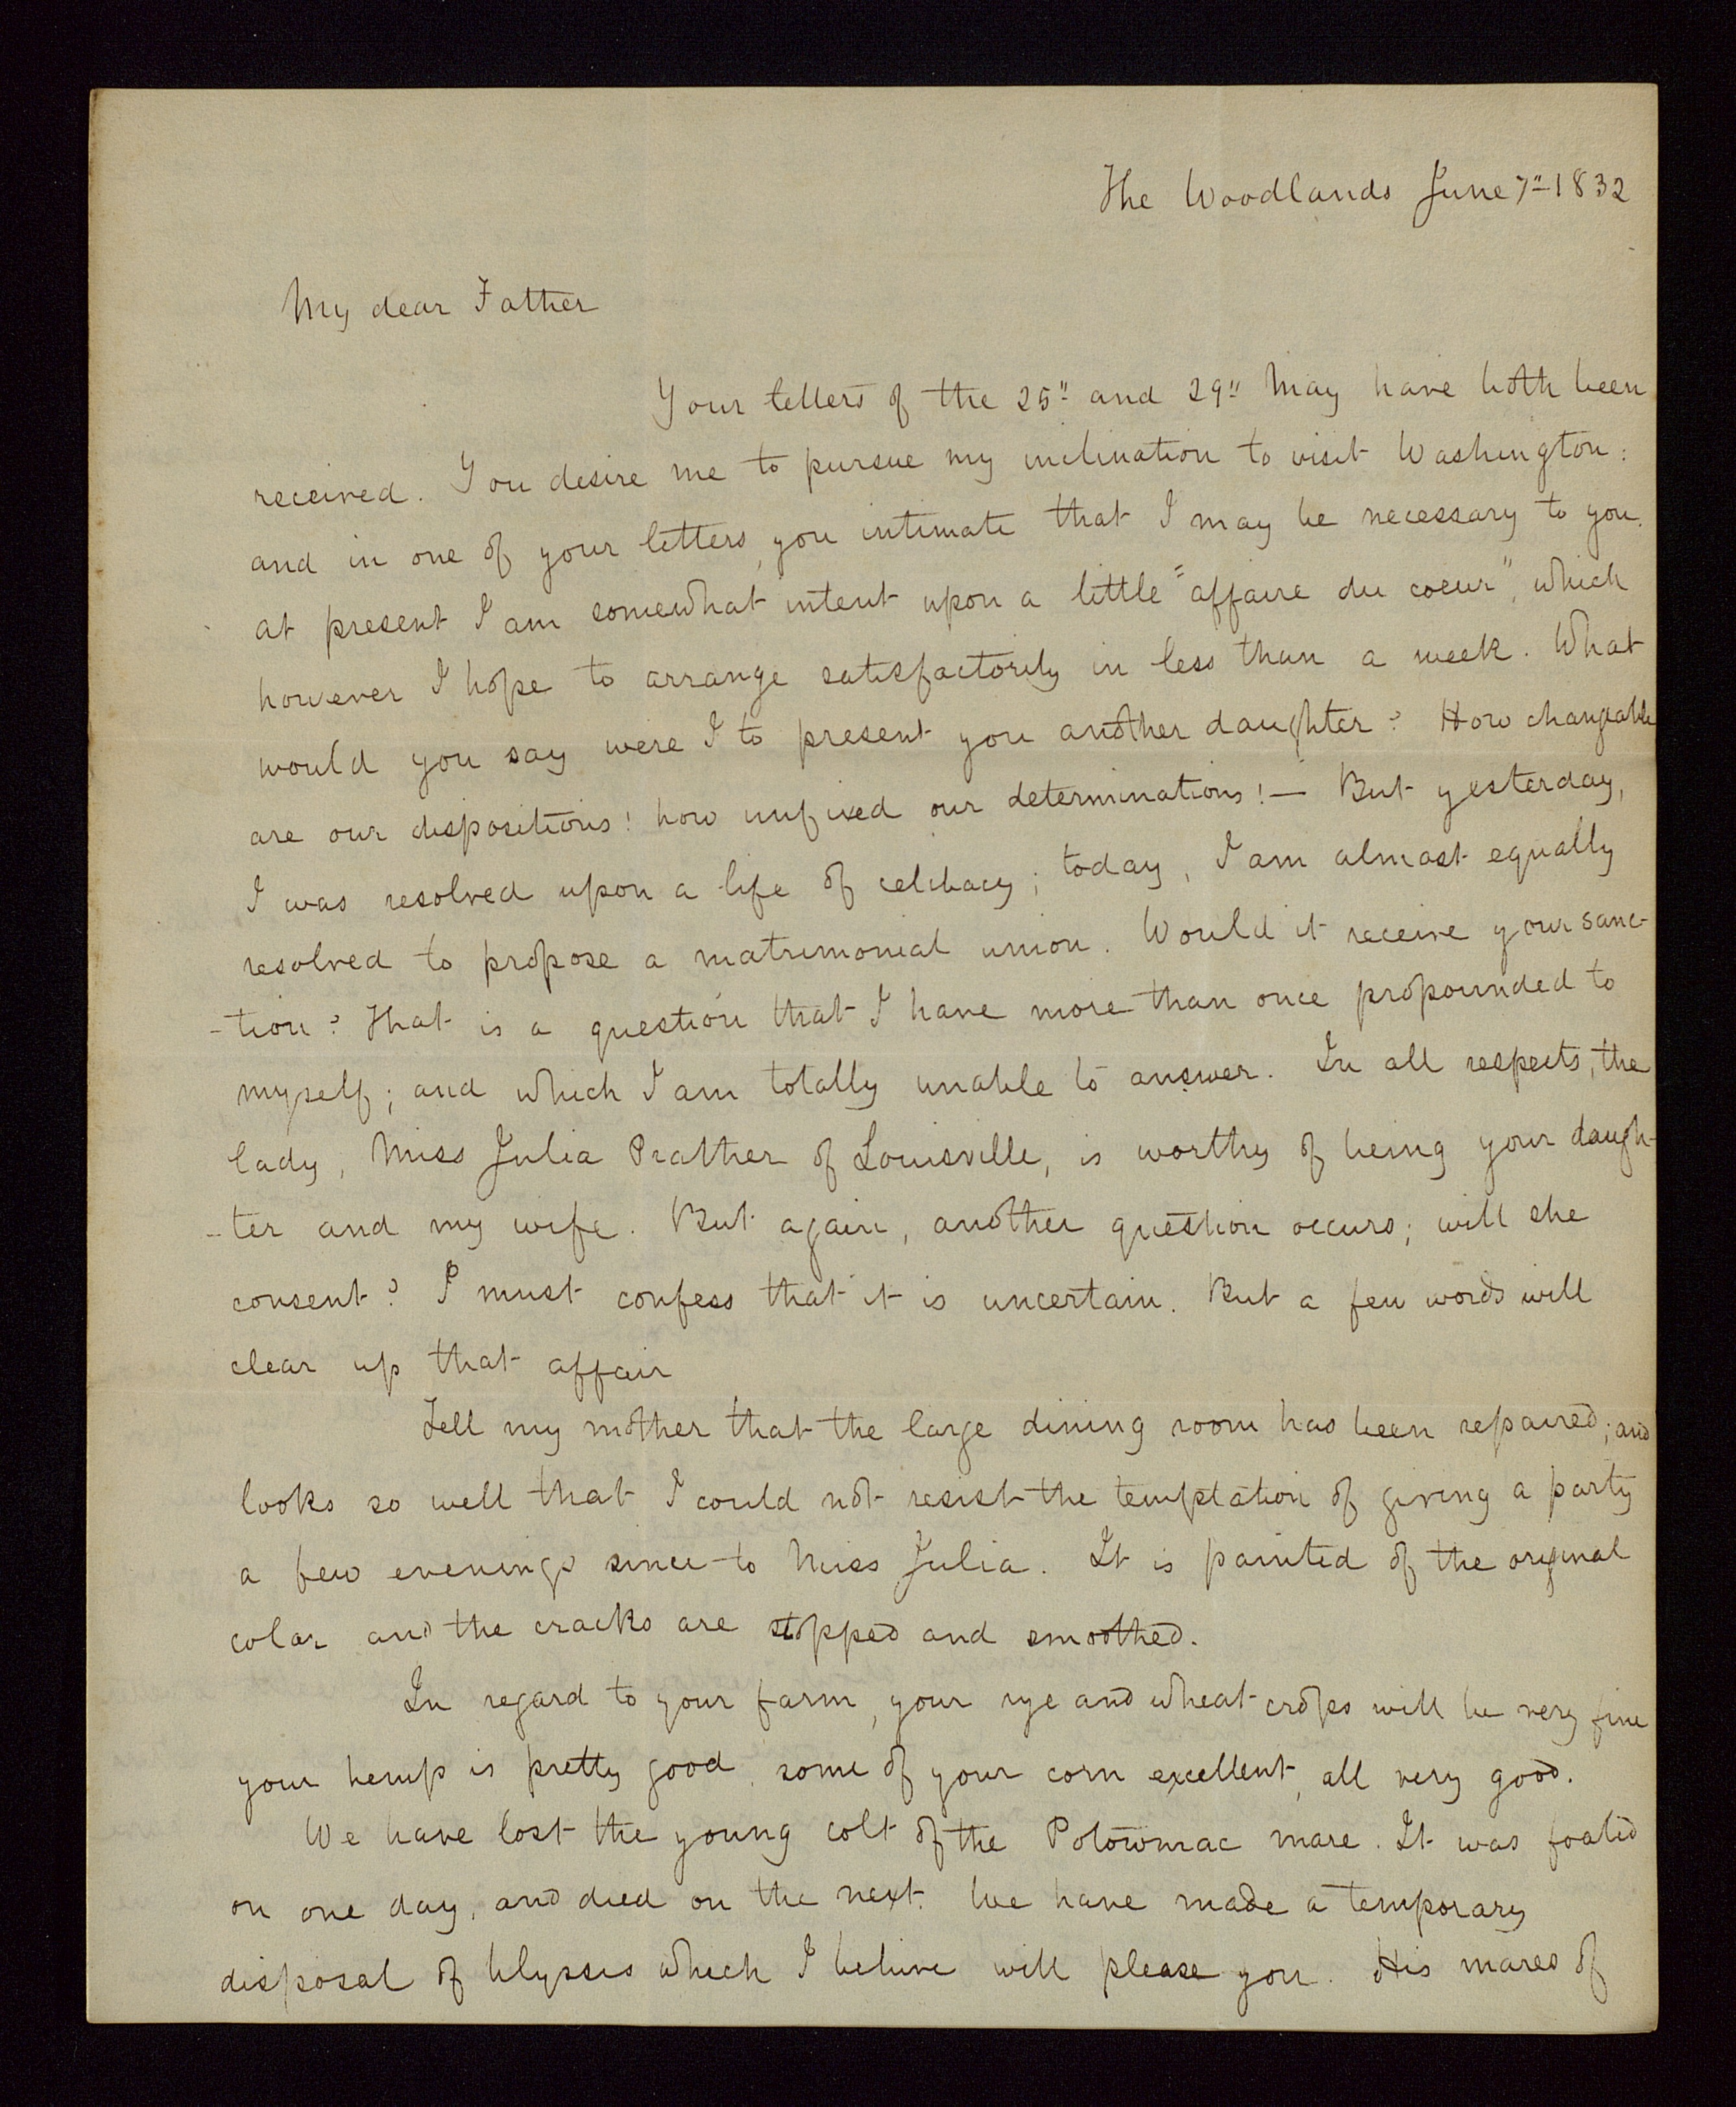 The Woodlands June 7"-1832
My dear Father
Your letters of the 25" and 29" May have both been
received. You desire me to pursue my inclination to visit Washington:
and in one of your letters, you intimate that I may be necessary to you.
at present I am somewhat intent upon a little "affaire du coeur", which
however I hope to arrange satisfactorily in less than a week. What
would you say were I to present you another daughter? How changeable
are our dispositions! how unfixed our determinations!— But yesterday,
I was resolved upon a life of celibacy; today, I am almost equally
resolved to propose a matrimonial union. Would it receive your sanc-
-tion? That is a question that I have more than once propounded to
myself; and which I am totally unable to answer. In all respects, the
lady, Miss Julia Prather of Louisville, is worthy of being your daugh-
-ter and my wife. But again, another question occurs; will she
consent? I must confess that it is uncertain. But a few words will
clear up that affair
Tell my mother that the large dining room has been repaired; and
looks so well that I could not resist the temptation of giving a party
a few evenings since to Miss Julia. It is painted of the original
color and the cracks are stopped and smoothed.
In regard to your farm, your rye and wheat crops will be very fine
your hemp is pretty good, some of your corn excellent, all very good.
We have lost the young colt of the Potowmac mare. It was foaled
on one day, and died on the next. We have made a temporary
disposal of Ulysses which I believe will please you. His mares of